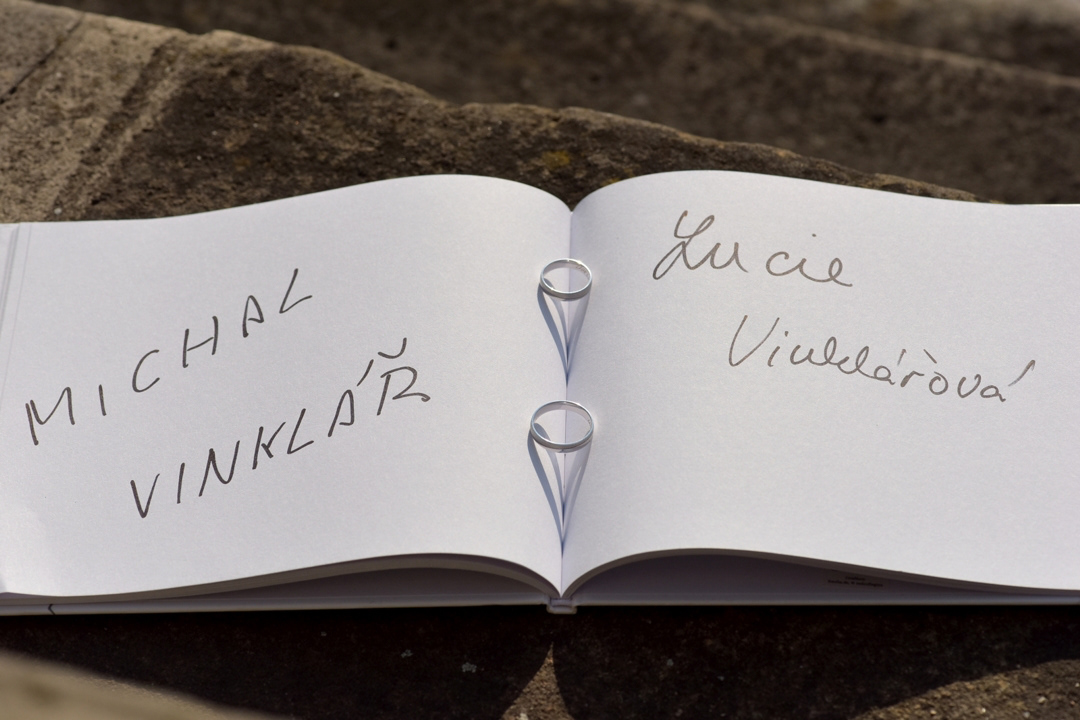 MICHAL
VINKLÁŘ
Lucie
Vinklářová